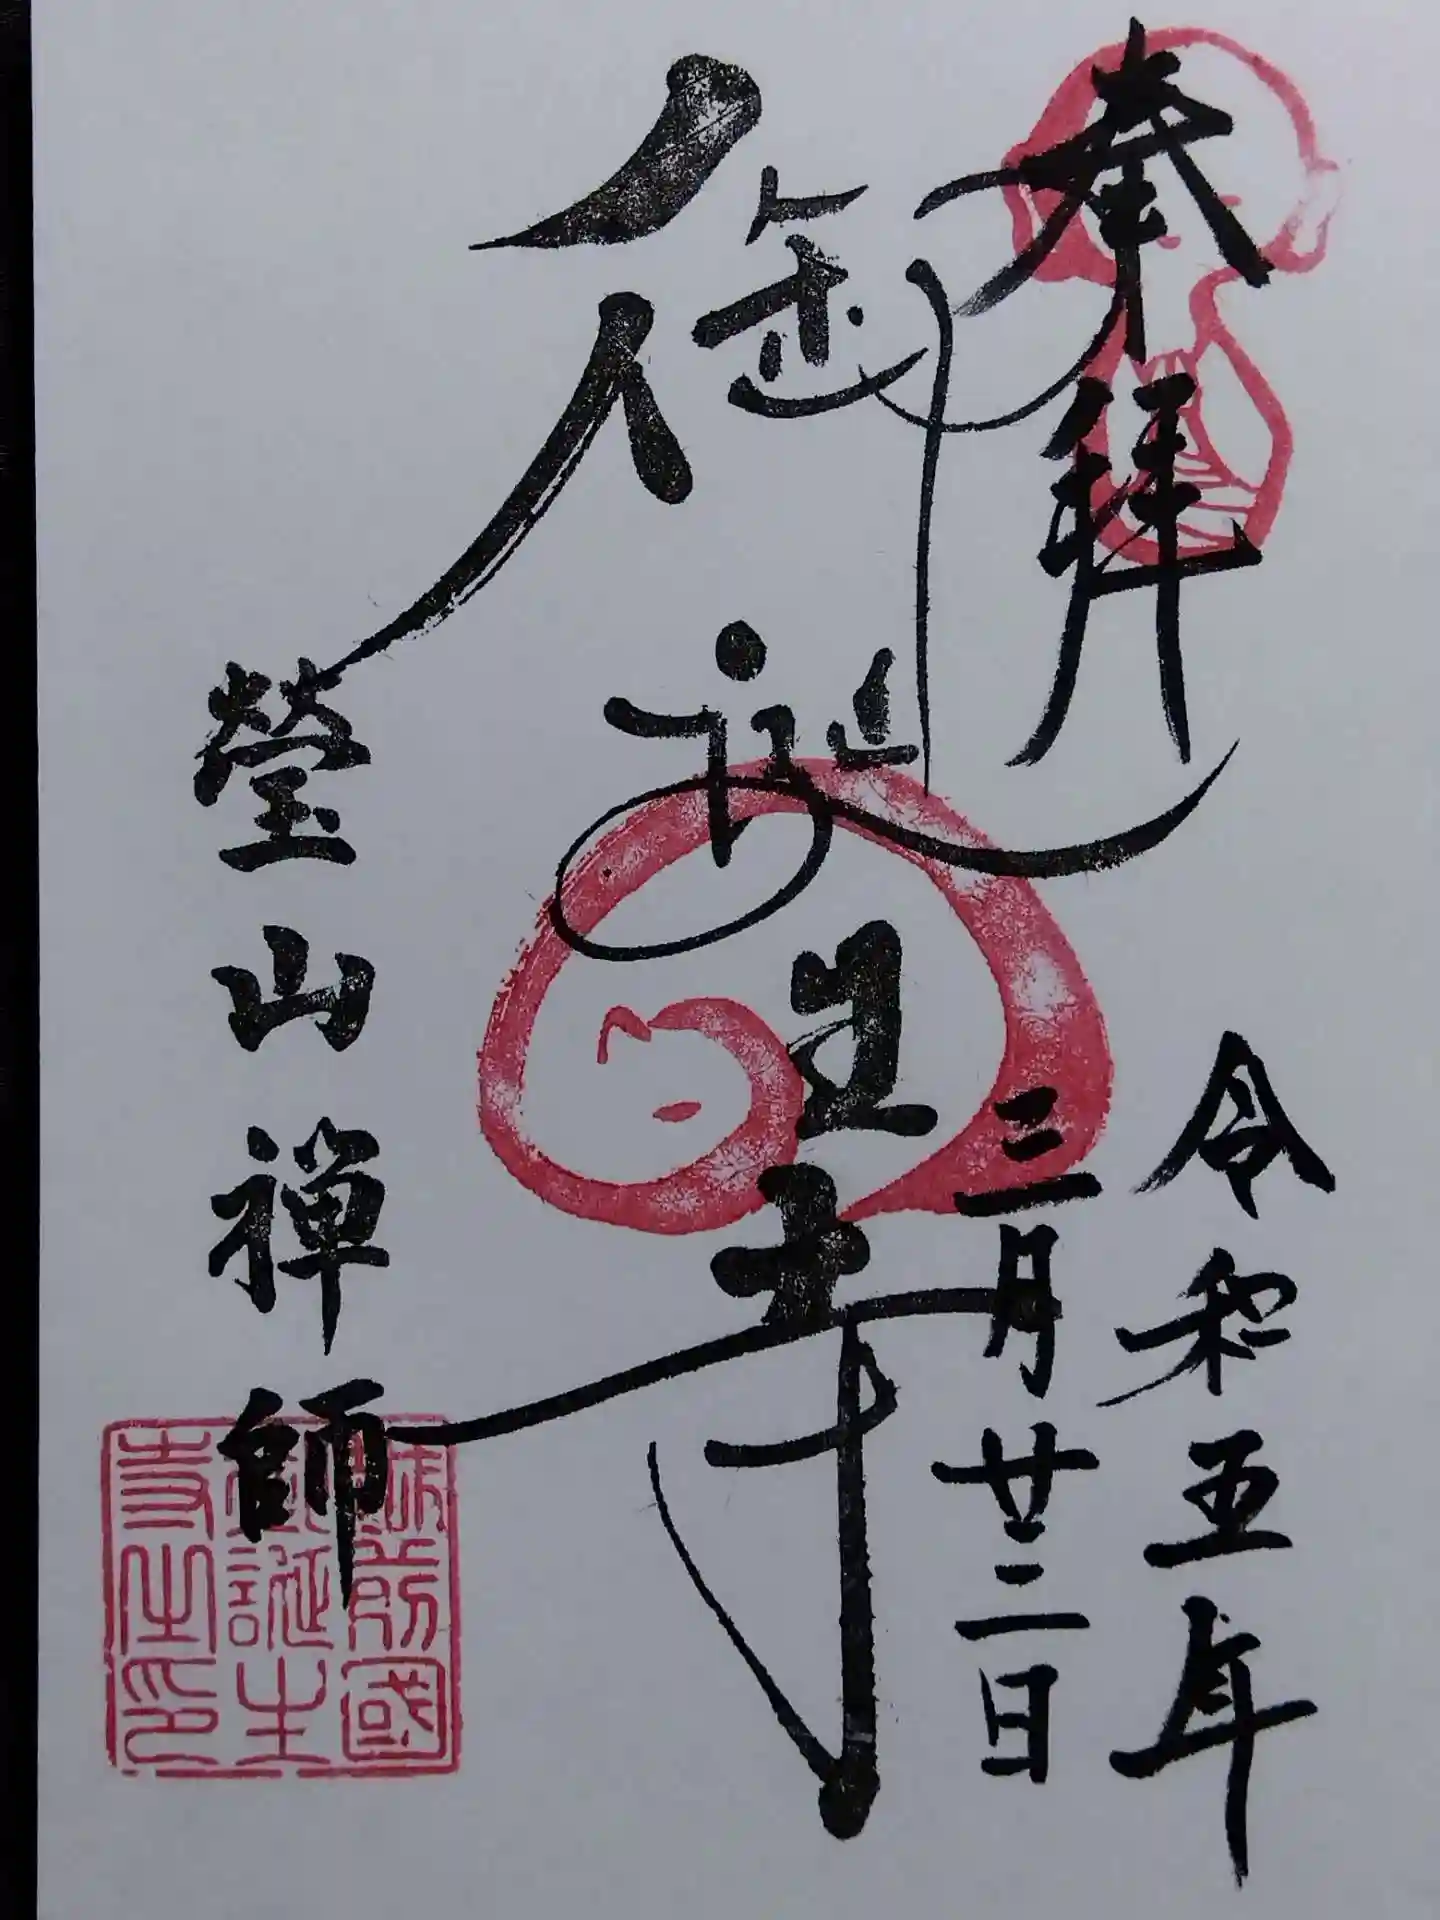 奉拝
令和五年
三月廿三日
御誕生寺
瑩山禪師
越前國
御誕生
寺之印